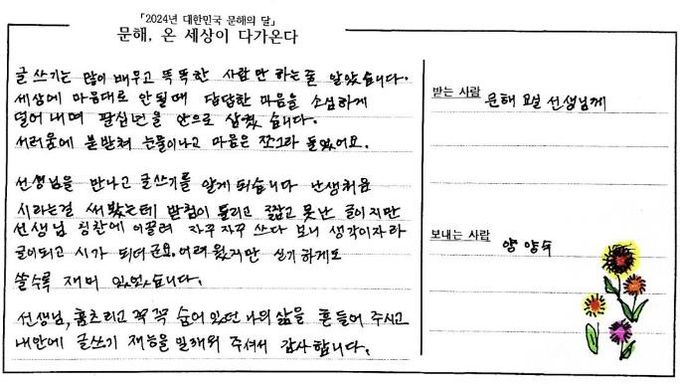 「2024년 대한민국 문해의 달」
문해, 온 세상이 다가온다
글 쓰기는 많이 배우고 똑똑한 사람만 하는줄 알았습니다.
세상에 마음대로 안될때 답답한 마음을 소심하게
덜어내며 팔십년을 안으로 삼켰습니다.
서러움에 북받쳐 눈물이나고 마음은 쪼그라 들었어요.
선생님을 만나고 글쓰기를 알게 되습니다 난생처음
시라는걸 써봤는데 받침이 틀리고 짧고 못난 글이지만
선생님 칭찬에 이끌려 자꾸자꾸 쓰다 보니 생각이자라
글이되고 시가 되더군요. 어려웠지만 신기하게도
쓸수록 재미 있었습니다.
선생님, 움츠리고 꼭꼭 숨어있던 나의 삶을 흔들어 주시고
내안에 글쓰기 재능을 일깨워 주셔서 감사합니다.
받는 사람
문해 선생님께
보내는 사람
양양숙